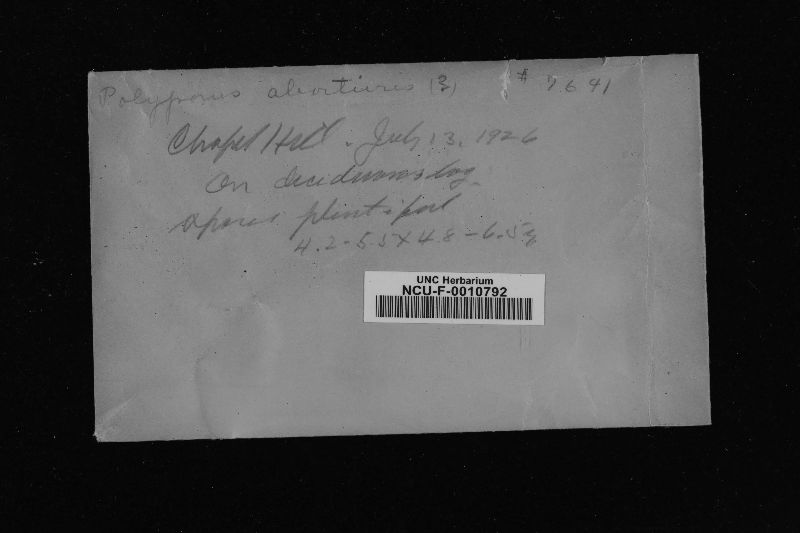 Polyporus abortivus (?) # 7641
Chapel Hill. July 13, 1926
On deciduous log.
Spores plentiful
4.2-5.5 x 4.8-6.5μ
UNC Herbarium
NCU-F-0010792